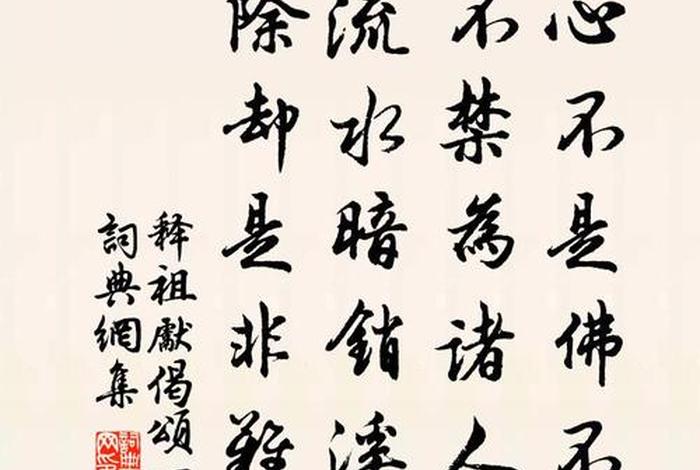 心不是佛不
不禁為諸人
流水暗銷溪
除却是非難
释祖獻偈頌
詞典網集